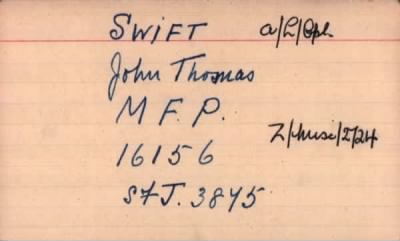 SWIFT a/L/Cpl.
John Thomas
M F. P.
Z/Musi/2/24
16156
S+J. 3845